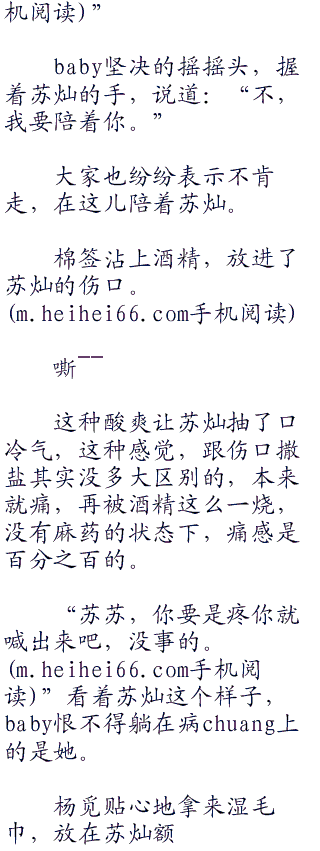 机阅读)”
baby坚决的摇摇头，握
着苏灿的手，说道：“不，
我要陪着你。”
大家也纷纷表示不肯
走，在这儿陪着苏灿。
棉签沾上酒精，放进了
苏灿的伤口。
(m.heihei66.com手机阅读)
嘶——
这种酸爽让苏灿抽了口
冷气，这种感觉，跟伤口撒
盐其实没多大区别的，本来
就痛，再被酒精这么一烧，
没有麻药的状态下，痛感是
百分之百的。
“苏苏，你要是疼你就
喊出来吧，没事的。
(m.heihei66.com手机阅
读)”看着苏灿这个样子，
baby恨不得躺在病chuang上
的是她。
杨觅贴心地拿来湿毛
巾，放在苏灿额